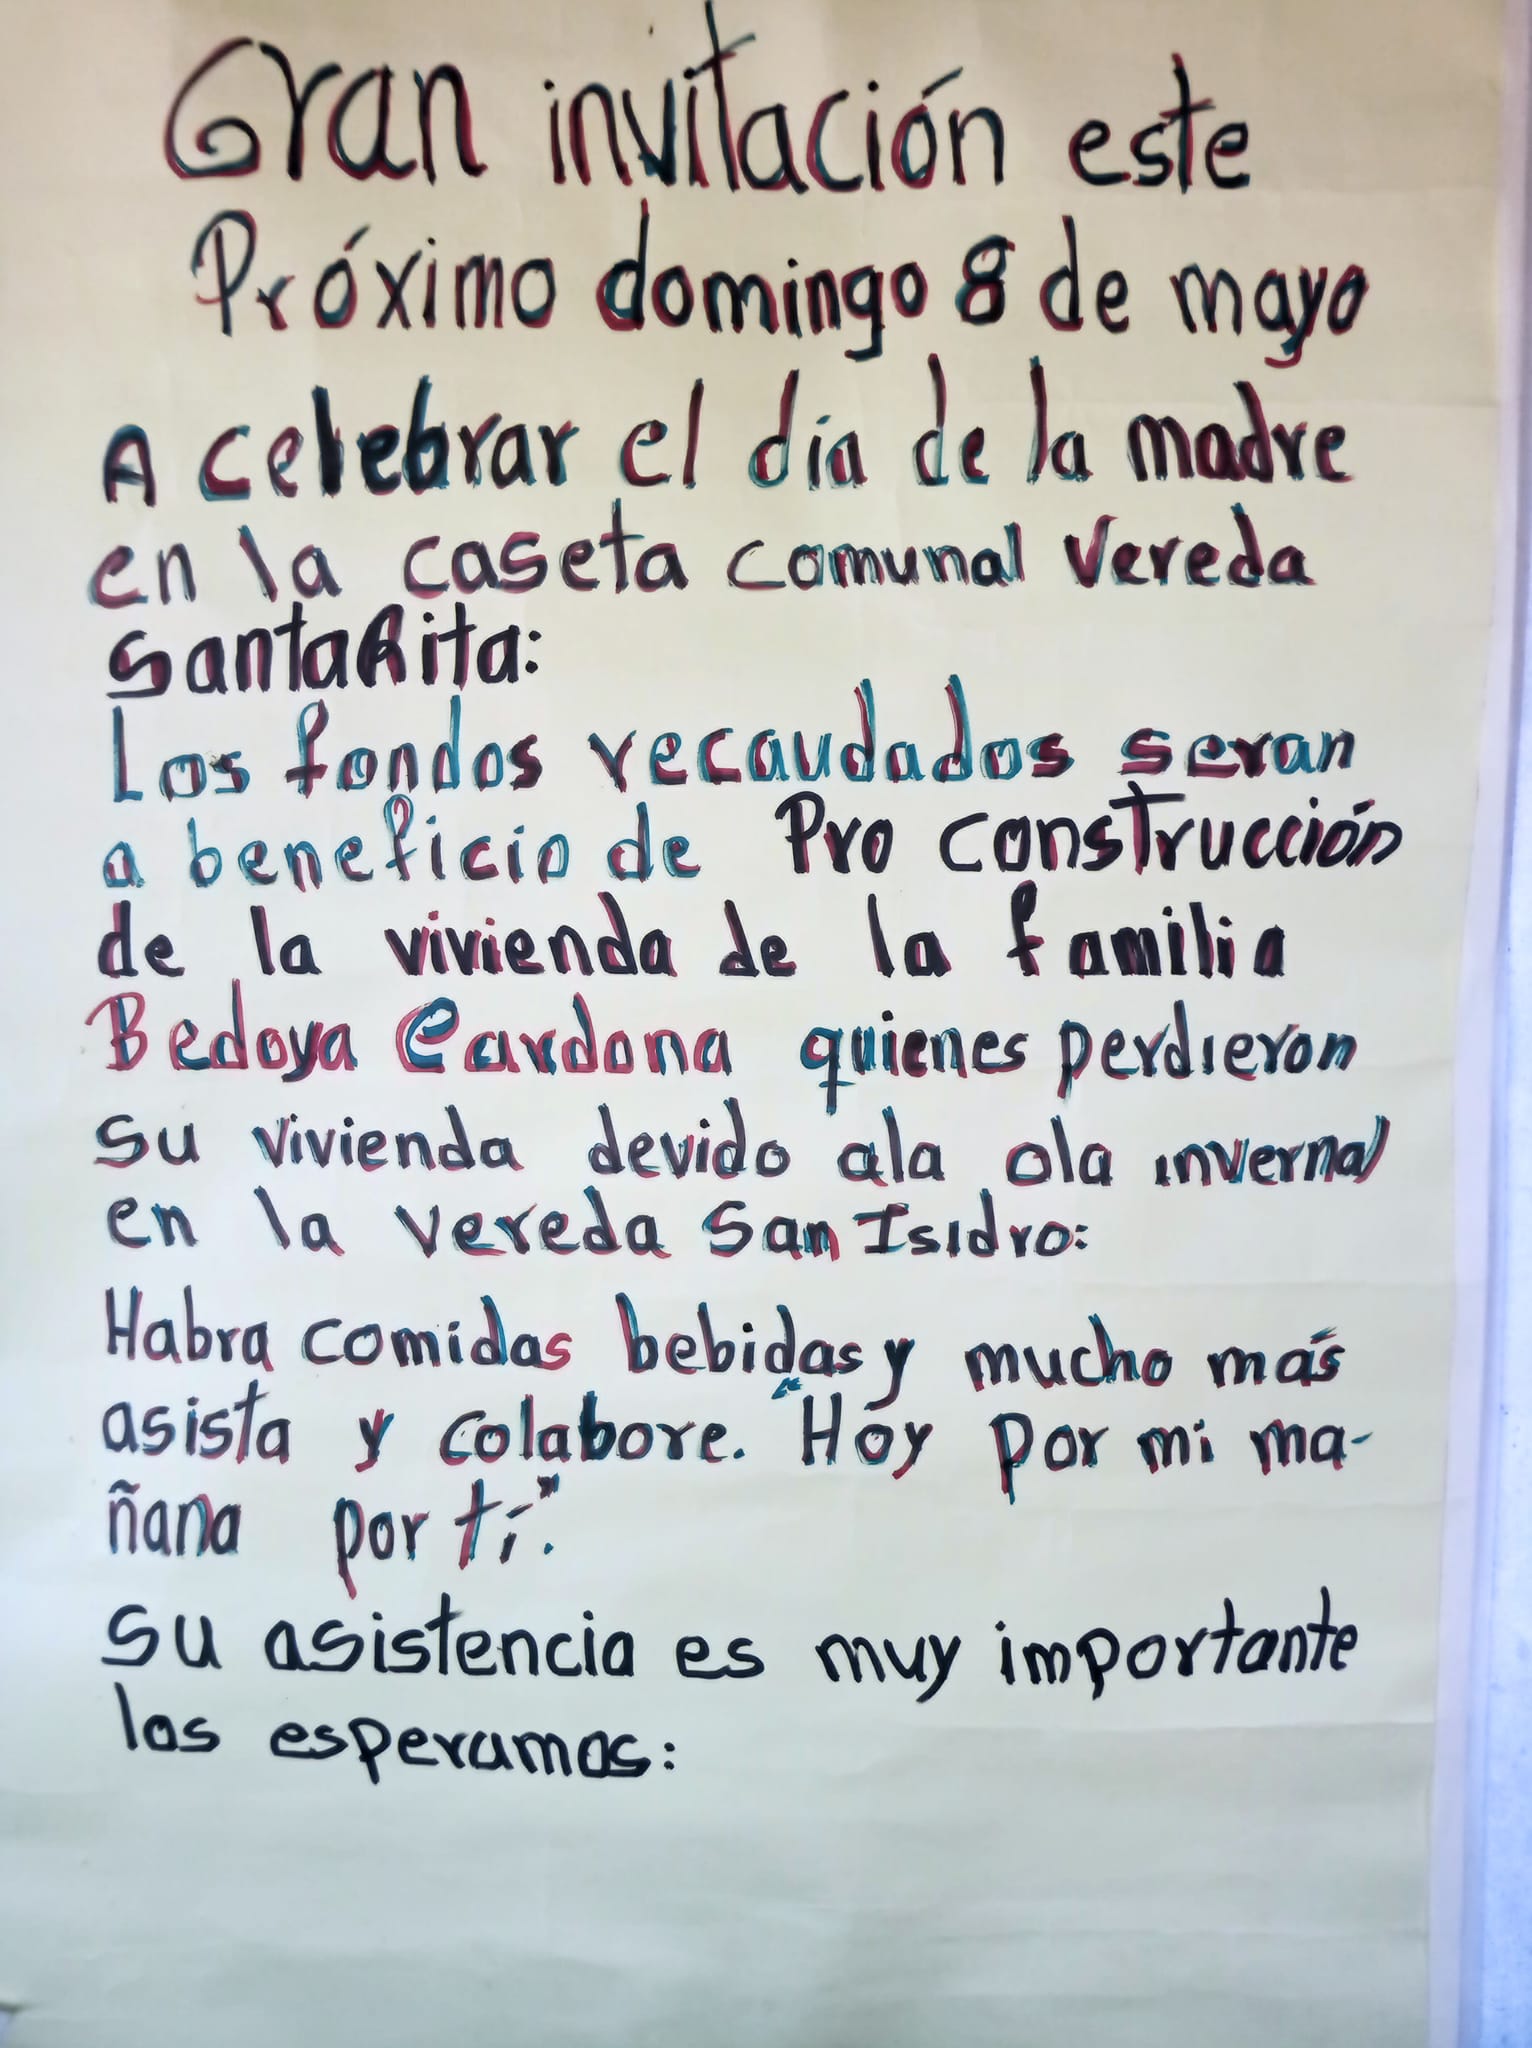 Gran invitación este
Próximo domingo 8 de mayo
A celebrar el día de la madre
en la caseta comunal Vereda
Santa Rita:
Los fondos recaudados seran
a beneficio de Pro construcción
de la vivienda de la familia
Bedoya Cardona quienes perdieron
su vivienda devido ala ola invernal
en la vereda San Isidro:
Habra comidas bebidas y mucho más
asista y colabore. "Hoy por mi ma-
ñana por tí".
Su asistencia es muy importante
los esperamos: